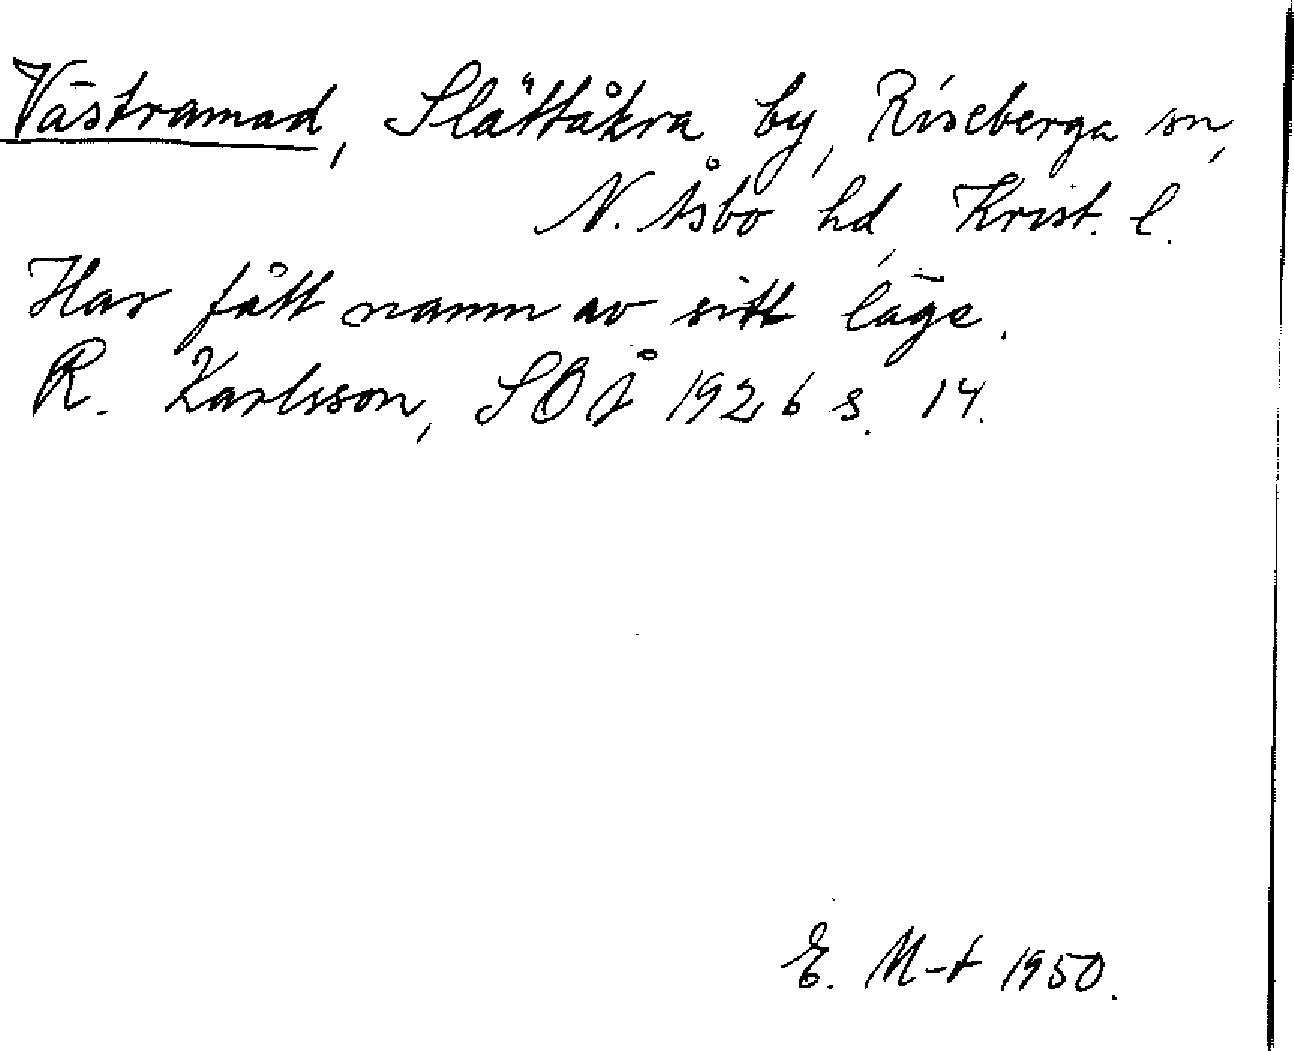 Västramad, Slättåkra by, Riseberga sn,
N. Åsbo hd, Krist. l.
Har fått namn av sitt läge.
R. Karlsson, SOÅ 1926 s. 14.
E. M-t 1950.